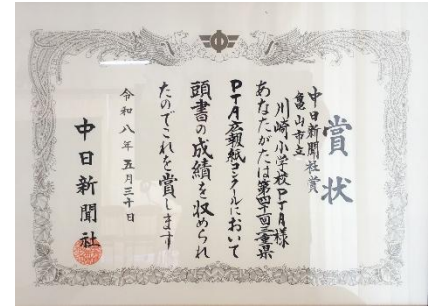 賞状
中日新聞社賞
亀山市立
川崎小学校PTA様
あなたがたは第四十回三重県
PTA広報紙コンクールにおいて
頭書の成績を収められ
たのでこれを賞します
令和八年五月三十日
中日新聞社